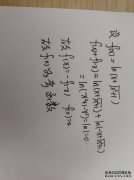 设 f(x) = ln(x+√x²+1)
f(x)+f(-x) = ln(x+√x²+1) + ln(-x+√x²+1)
= ln(x²+1-x²) = ln1 = 0
故 f(x) = -f(-x) f(0)=0
故 f(x) 为奇函数